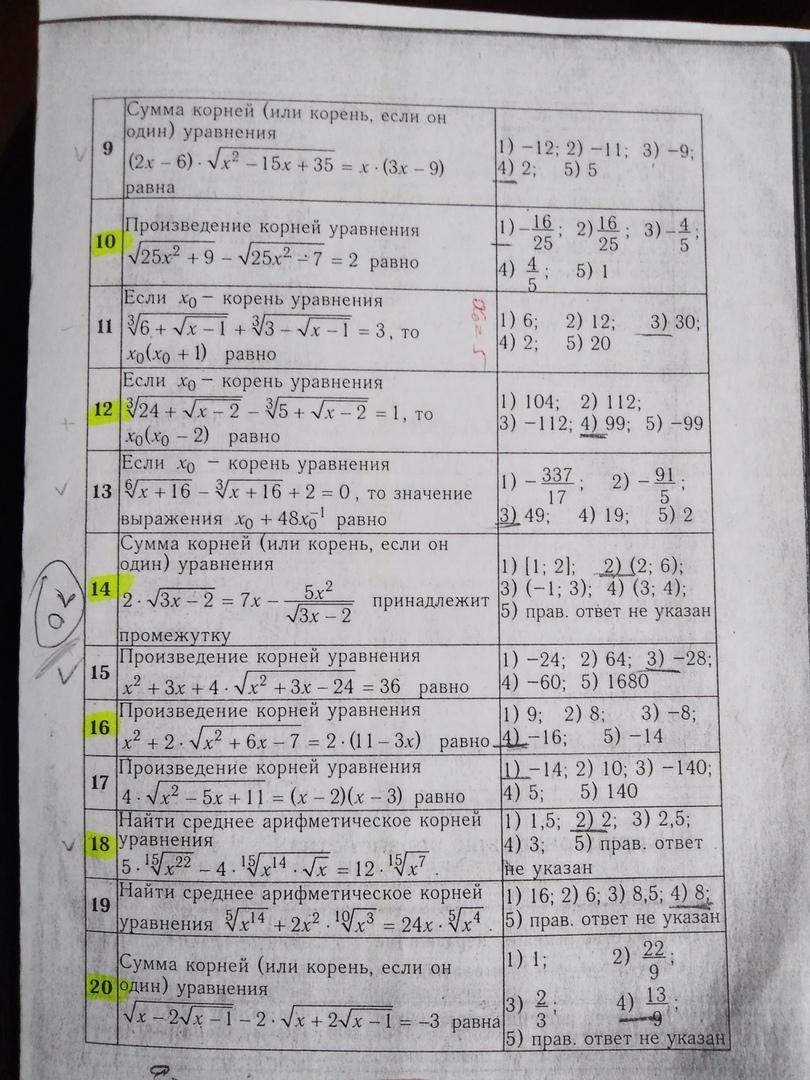 9
Сумма корней (или корень, если он
один) уравнения
(2x − 6) · √(x² − 15x + 35) = x · (3x − 9)
равна
1) −12; 2) −11; 3) −9;
4) 2; 5) 5
10
Произведение корней уравнения
√(25x² + 9) − √(25x² − 7) = 2 равно
1) −16/25; 2) 16/25; 3) −4/5;
4) 4/5; 5) 1
11
Если x₀ − корень уравнения
∛(6 + √(x − 1)) + ∛(3 − √(x − 1)) = 3, то
x₀(x₀ + 1) равно
1) 6; 2) 12; 3) 30;
4) 2; 5) 20
12
Если x₀ − корень уравнения
∛(24 + √(x − 2)) − ∛(5 + √(x − 2)) = 1, то
x₀(x₀ − 2) равно
1) 104; 2) 112;
3) −112; 4) 99; 5) −99
13
Если x₀ − корень уравнения
⁶√(x + 16) − ∛(x + 16) + 2 = 0, то значение
выражения x₀ + 48x₀⁻¹ равно
1) −337/17; 2) −91/5;
3) 49; 4) 19; 5) 2
14
Сумма корней (или корень, если он
один) уравнения
2 · √(3x − 2) = 7x − 5x²/√(3x − 2) принадлежит
промежутку
1) [1; 2]; 2) (2; 6);
3) (−1; 3); 4) (3; 4);
5) прав. ответ не указан
15
Произведение корней уравнения
x² + 3x + 4 · √(x² + 3x − 24) = 36 равно
1) −24; 2) 64; 3) −28;
4) −60; 5) 1680
16
Произведение корней уравнения
x² + 2 · √(x² + 6x − 7) = 2 · (11 − 3x) равно
1) 9; 2) 8; 3) −8;
4) −16; 5) −14
17
Произведение корней уравнения
4 · √(x² − 5x + 11) = (x − 2)(x − 3) равно
1) −14; 2) 10; 3) −140;
4) 5; 5) 140
18
Найти среднее арифметическое корней
уравнения
5 · ¹⁵√(x²²) − 4 · ¹⁵√(x¹⁴ · √x) = 12 · ¹⁵√(x⁷) .
1) 1,5; 2) 2; 3) 2,5;
4) 3; 5) прав. ответ
не указан
19
Найти среднее арифметическое корней
уравнения ⁵√(x¹⁴) + 2x² · ¹⁰√(x³) = 24x · ⁵√(x⁴) .
1) 16; 2) 6; 3) 8,5; 4) 8;
5) прав. ответ не указан
20
Сумма корней (или корень, если он
один) уравнения
√(x − 2√(x − 1)) − 2 · √(x + 2√(x − 1)) = −3 равна
1) 1; 2) 22/9;
3) 2/3; 4) 13/9;
5) прав. ответ не указан